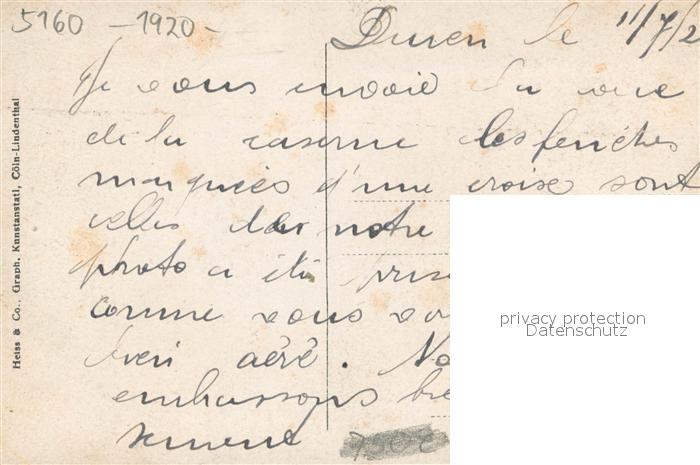 5160 - 1920 -
Duren le 11/7/2
Je vous envoie la vue
de la caserne les fenêtes
marquées d'une croise sont
celles de notre
photo a été prise
comme vous
bien aéré. No
embrassons bie
sement
Heiss & Co., Graph. Kunstanstalt, Cöln-Lindenthal
privacy protection
Datenschutz